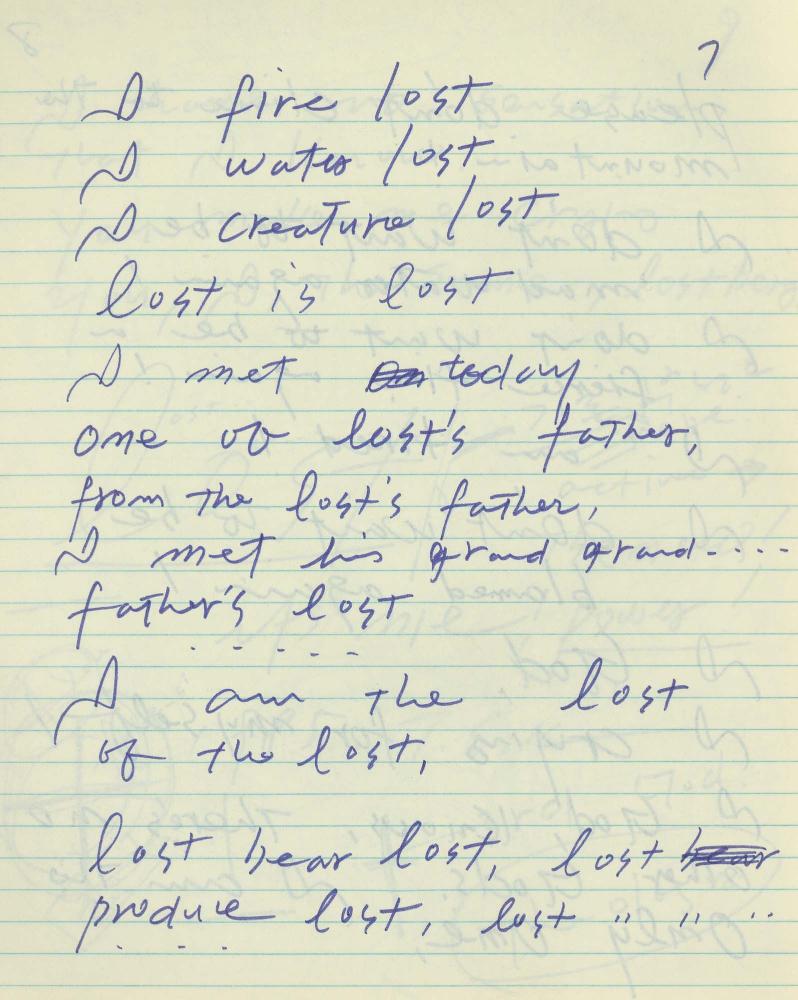 7
I fire lost
I water lost
I creature lost
lost is lost
I met today
one of lost's father,
from the lost's father,
I met his grand grand.....
father's lost
. . . . .
I am the lost
of the lost,
lost bear lost, lost
produce lost, lost " " ..
. . . .